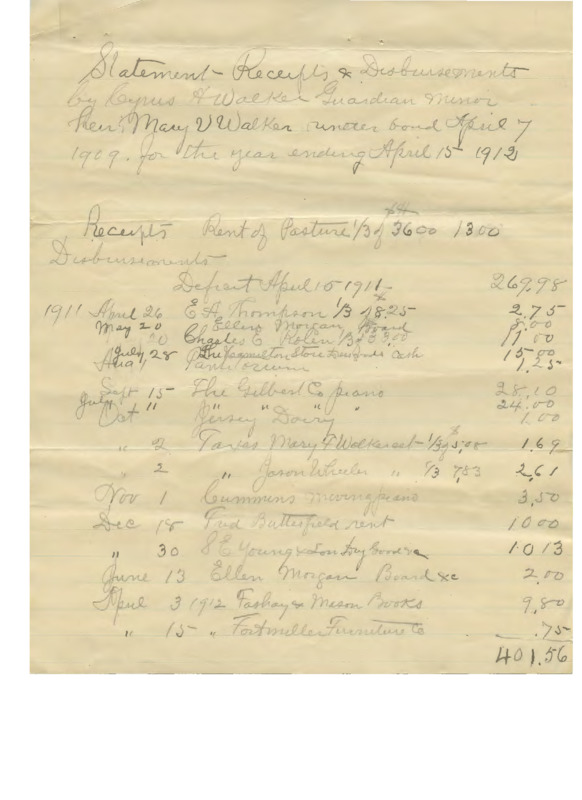 Statement - Receipts & Disbursements
by Cyrus H Walker Guardian minor
heir, Mary V Walker under bond April 7
1909. for the year ending April 15 1912
Receipts Rent of Pasture 1/3 of 3600 1300
Disbursements
Deficit April 15 1911 - 269.98
1911 April 26 E A. Thompson 1/3 of 8.25 2.75
May 20 Ellen Morgan Board 8.00
20 Charles E 1/3 of 11.00
July 28 The Hamilton Store Cash 15.00
Aug 1 Pantorium 1.25
Sept 15 The Gilbert Co piano 28.10
July 24.00
Oct " Jersey " Dairy " 1.00
" 2 Taxes Mary F Walker est - 1/3 of 5,08 1.69
" 2 " Jason Wheeler " 1/3 7,83 2.61
Nov 1 Cummins moving piano 3.50
Dec 18 Fred Butterfield rent 10 00
" 30 S E Young & Son Dry Goods 10 13
June 13 Ellen Morgan Board &c 2.00
April 3 1912 & Mason Books 9.80
" 15 " Fortmiller Furniture Co .75
401.56